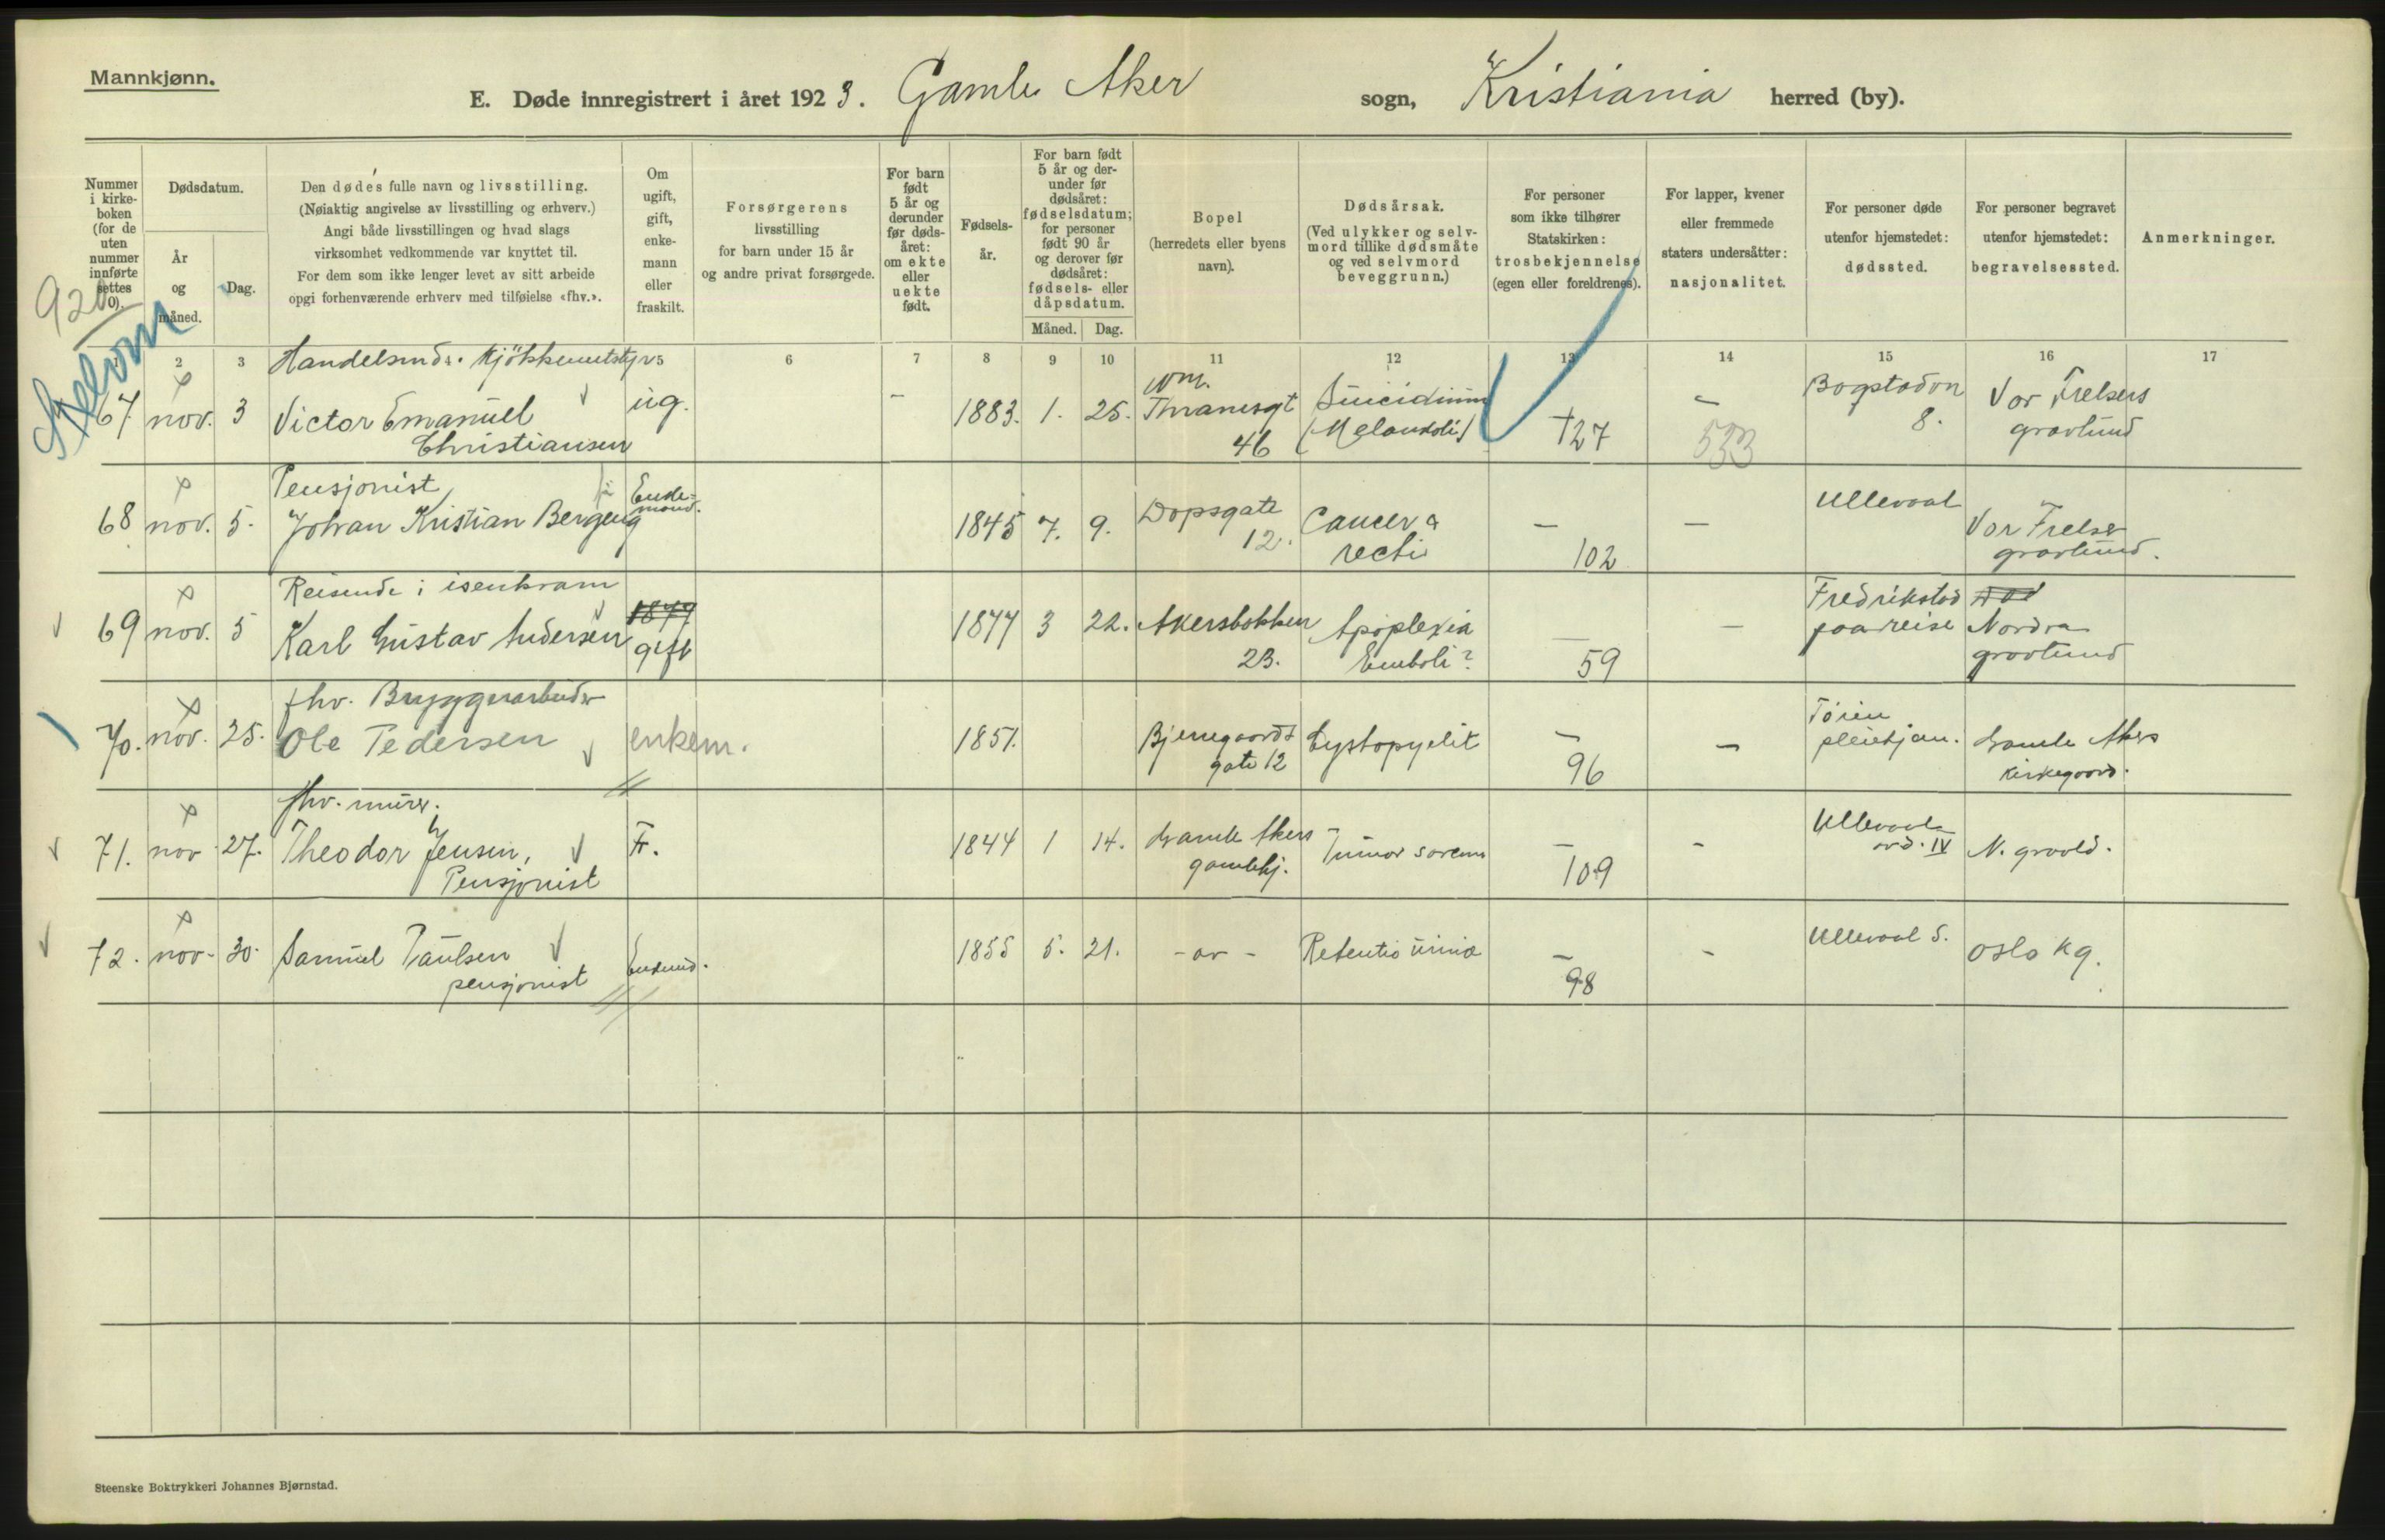 Mannkjønn.
E. Døde innregistrert i året 1923. Gamle Aker sogn, Kristiania herred (by).
Nummer i kirkeboken (for de uten nummer innførte settes 0).
Dødsdatum.
År og måned.
Dag.
Den dødes fulle navn og livsstilling.
(Nøiaktig angivelse av livsstilling og erhverv.)
Angi både livsstillingen og hvad slags
virksomhet vedkommende var knyttet til.
For dem som ikke lenger levet av sitt arbeide
opgi forhenværende erhverv med tilføielse «fhv.».
Om ugift, gift, enkemann eller fraskilt.
Forsørgerens
livsstilling
for barn under 15 år
og andre privat forsørgede.
For barn født 5 år og derunder før dødsåret: om ekte eller uekte født.
Fødselsår.
For barn født 5 år og derunder før dødsåret: fødselsdatum; for personer født 90 år og derover før dødsåret: fødsels- eller dåpsdatum.
Måned. Dag.
Bopel
(herredets eller byens
navn).
Dødsårsak.
(Ved ulykker og selvmord tillike dødsmåte og ved selvmord beveggrunn.)
For personer
som ikke tilhører
Statskirken:
trosbekjennelse
(egen eller foreldrenes).
For lapper, kvener
eller fremmede
staters undersåtter:
nasjonalitet.
For personer døde
utenfor hjemstedet:
dødssted.
For personer begravet
utenfor hjemstedet:
begravelsessted.
Anmerkninger.
920
1 2 3 5 6 7 8 9 10 11 12 13 14 15 16 17
67 nov. 3 Victor Emanuel
Christiansen
ug. - 1883. 1. 25. Thranesgt
46
Suicidium
(Melankoli)
127
533
8.
Vor Frelsers
gravlund
Pensjonist
68 nov. 5. Johan Kristian Bergeng
Enkemand.
1845 7. 9. Dopsgate
12.
Cancer
recti
—
102
—
Ullevaal
Vor Frelser
gravlund.
Reisende i isenkram
69 nov. 5 Karl Gustav Andersen
1879
gift
1877 3 22. Akersbakken
23.
Apoplexia
Emboli?
—
59
—
Fredrikstad
paa reise
Nordre
gravlund
fhv. Bryggerarbeider
70. nov. 25. Ole Pedersen enkem. 1851.
Bjerregaards
gate 12
Cystopyelit
—
96
—
Tøien
pleiehjem.
Gamle Akers
kirkegaard.
fhv. murer.
71. nov 27. Theodor Jensen,
Pensjonist
F. 1844 1 14. Gamle Akers
gamlehj.
Tumor
—
109
-
Ullevaal
avd. IV
N. gravld.
72. nov. 30. Samuel Paulsen
pensjonist
1855 5. 21. Retentio urinæ
—
98
-
Ullevaal S.
Oslo Kg.
Steenske Boktrykkeri Johannes Bjørnstad.